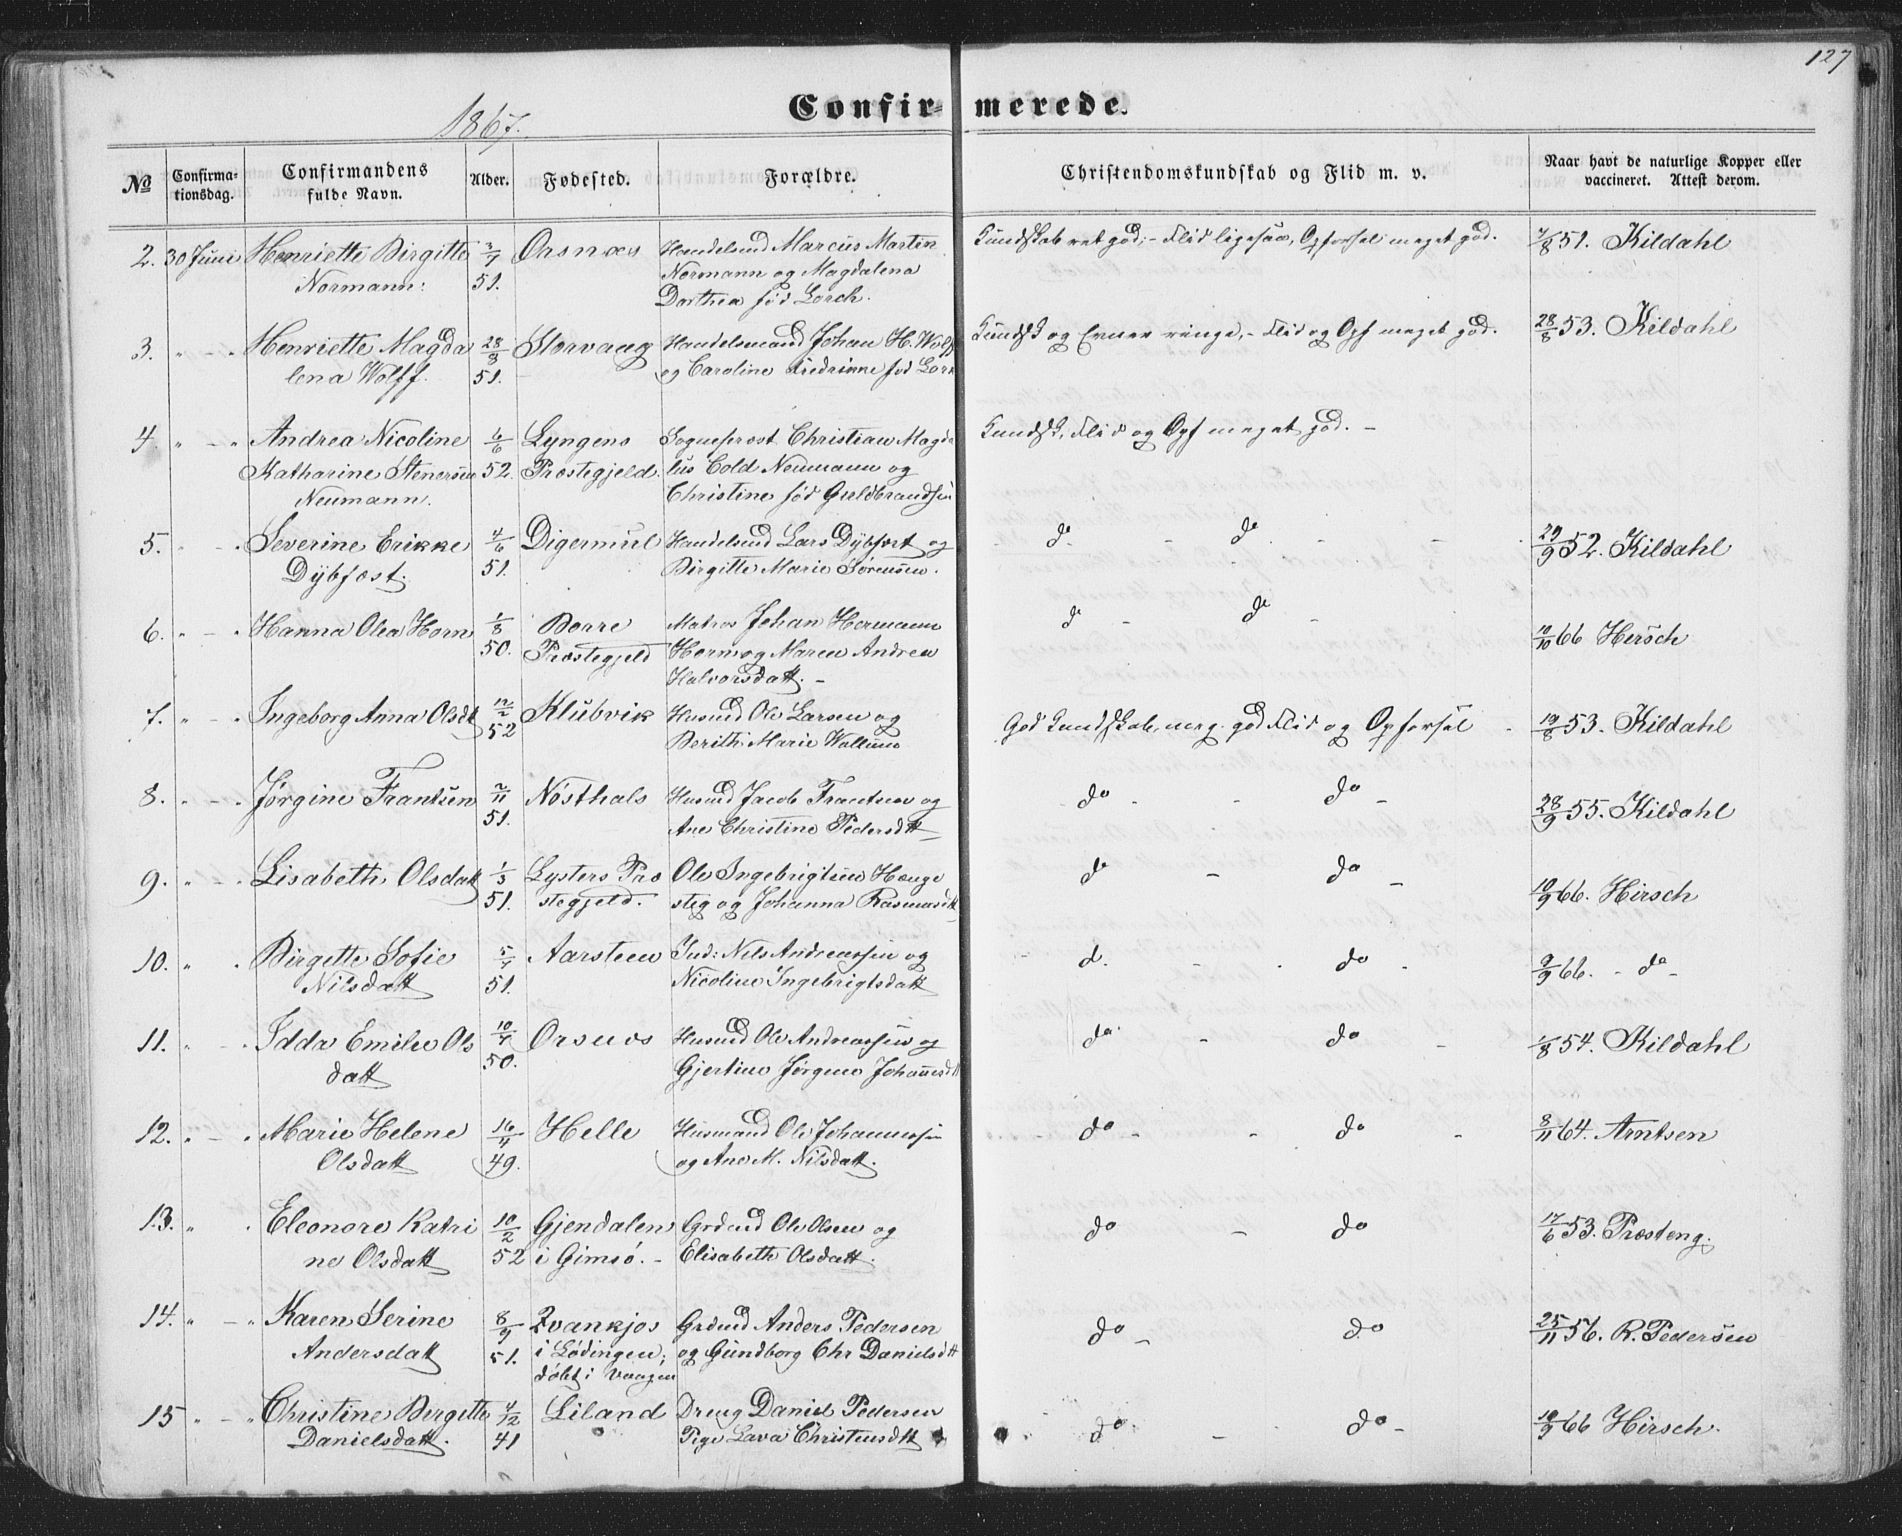 127
1867.
Confirmerede.
No
Confirma-
tionsdag.
Confirmandens
fulde Navn.
Alder.
Fødested.
Forældre.
Christendomskundskab og Flid m. v.
Naar havt de naturlige Kopper eller
vaccineret. Attest derom.
2. 30 Juni Henriette Birgitte Orsnæs Handelsmd Marcus Martin Kundskab ret god; - Flid ligesaa, Opførsel meget god. 7/8 51. Kildahl
Normann. 51. Normann og Magdalena
Dorthea fød Lorch.
3. " - " Henriette Magda 28/8 Storvaag Handelsmand Johan H. Wolff Kundsk og Evner ringe, - Flid og Opf meget god. 28/8 53. Kildahl
lena Wolff. 51. og Caroline Fredrikke fød Lork
4. " - " Andrea Nicoline 6/6 Lyngens Sogneprest Christian Magda Kundsk, Flid og Opf meget god. -
Katharine Stenersen 52. Præstegjeld. lus Cold Neumann og
Neumann. Christine fød Guldbrandsen
5. " - " Severine Erikke 4/6 Digermul Handelsmd Lars Dybfest og do - do - 29/9 52. Kildahl
Dybfest. 51. Birgitte Marie Sørensen.
6. " - " Hanna Olea Horn 1/8 Borre Matros Johan Hermann do - do - 10/10 66 Hirsch
50. Præstegjeld Horn og Maren Andrea
Halvorsdatt. -
7. " - " Ingeborg Anna Olsdt 12/2 Klubvik Husmd Ole Larsen og God Kundskab, meg. god Flid og Opførsel - 19/8 53. Kildahl
52 Berith Marie Wollum
8. " - " Jørgine Frantsen 2/11 Nøsthals Husmd Jacob Frantsen og do - - do - 28/9 55. Kildahl
51. Ane Christine Pedersdtt
9. " - " Lisabeth Olsdatt 1/3 Lysters Præ Ole Ingebrigtsen Hauge do - do - 10/9 66. Hirsch
51. stegjeld. steg og Johanna Rasmusdtt
10. " " Birgette Sofie 5/7 Aarsteen Ind: Nils Andreassen og d. - . do . 9/9 66. - do -
Nilsdatt 51. Nicoline Ingebrigtsdatt
11. " - " Idda Emilie Ols 10/7 Orsnes Husmd Ole Andreassen og do - do - 1/8 54. Kildahl
datt 50. Gjertine Jørgine Johannesdtt
12. " - " Marie Helene 16/11 Helle Husmand Ole Johannessen do - - do - 8/11 64. Arntsen
Olsdatt 49. og Ane M. Nilsdatt.
13. " " Eleonore Katri 10/2 Gjendalen Grdmd Ole Olsen og do - do 17/6 53. Præsteng.
ne Olsdatt 52 i Gimsø. - Elisabeth Olsdatt.
14. " - " Karen Serine 8/9 Kvankjos Grdmd Anders Pedersen do - do 25/11 56. R. Pedersen
Andersdatt 51. i Lødingen; og Gundborg Chr Danielsdtt
døbt i Vaagen
15 " - " Christine Birgitte 4/12 Liland Dreng Daniel Pedersen do - do - 10/9 66 Hirsch.
Danielsdatt. 41 Pige Lava Christensdtt